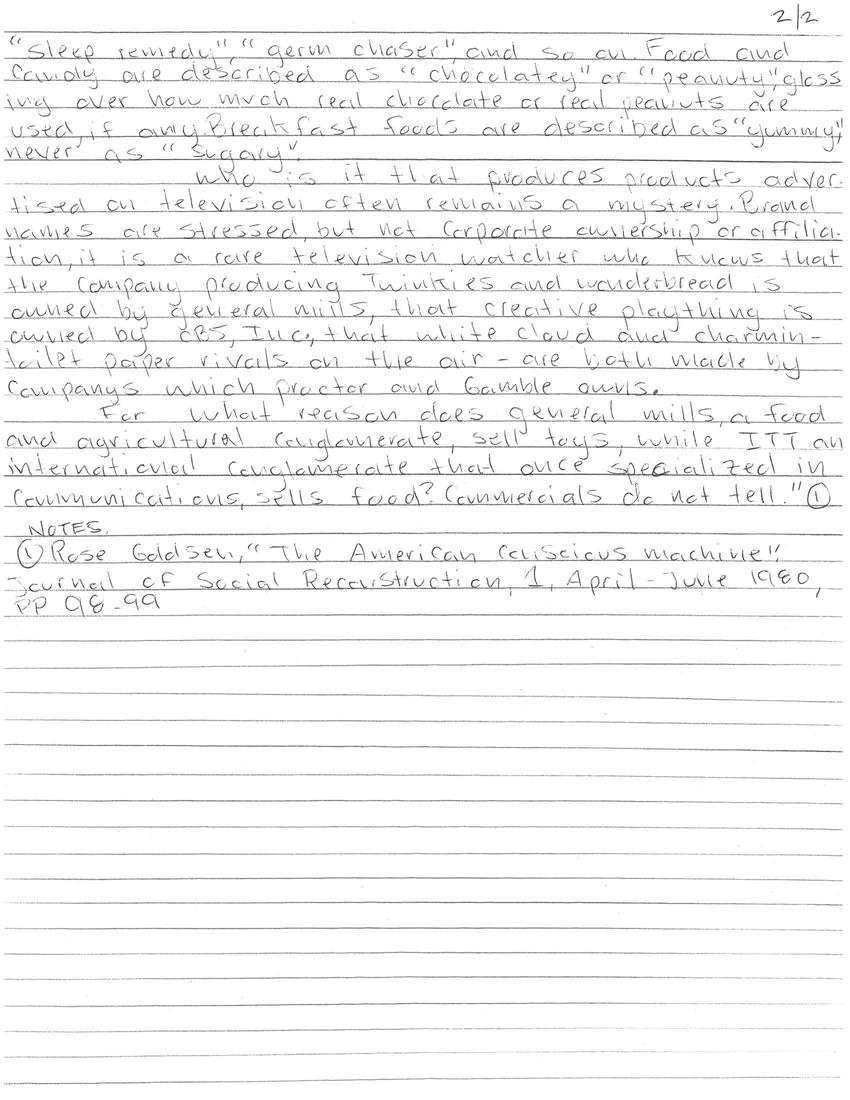 2/2
"sleep remedy", "germ chaser", and so on. Food and
Candy are described as "chocolatey" or "peanuty", gloss
ing over how much real chocolate or real peanuts are
used, if any. Breakfast foods are described as "yummy",
never as "sugary".
Who is it that produces products adver-
tised on television often remains a mystery. Brand
names are stressed, but not Corporate ownership or affilia-
tion, it is a rare television watcher who knows that
the Company producing Twinkies and wonderbread is
owned by general mills, that creative plaything is
owned by CBS, Inc, that white cloud and charmin -
toilet paper rivals on the air - are both made by
Companys which proctor and Gamble owns.
For what reason does general mills, a food
and agricultural Conglomerate, sell toys, while ITT an
international Conglomerate that once specialized in
Communications, sells food? Commercials do not tell." ①
NOTES.
① Rose Goldsen, "The American Conscious machine".
Journal of Social Reconstruction, 1, April - June 1980,
PP 98-99